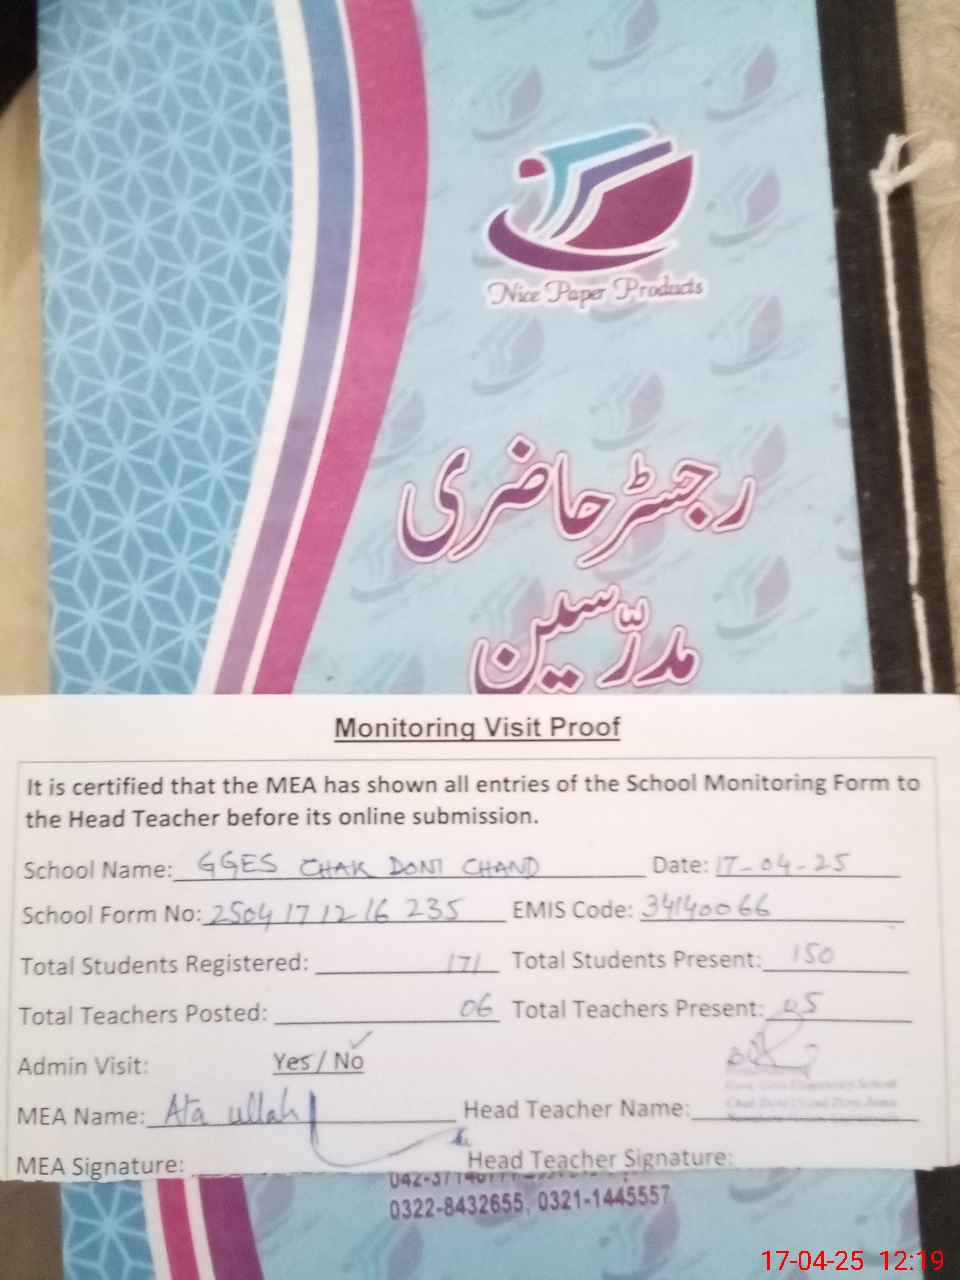 Nice Paper Products
رجسٹر حاضری
مدرّسین
Monitoring Visit Proof
It is certified that the MEA has shown all entries of the School Monitoring Form to
the Head Teacher before its online submission.
School Name: GGES CHAK DONI CHAND Date: 17-04-25
School Form No: 2504171216235 EMIS Code: 34140066
Total Students Registered: 171 Total Students Present: 150
Total Teachers Posted: 06 Total Teachers Present: 05
Admin Visit: Yes / No ✓
MEA Name: Ata ullah Head Teacher Name:
MEA Signature: Head Teacher Signature:
0322-8432655, 0321-1445557
17-04-25 12:19